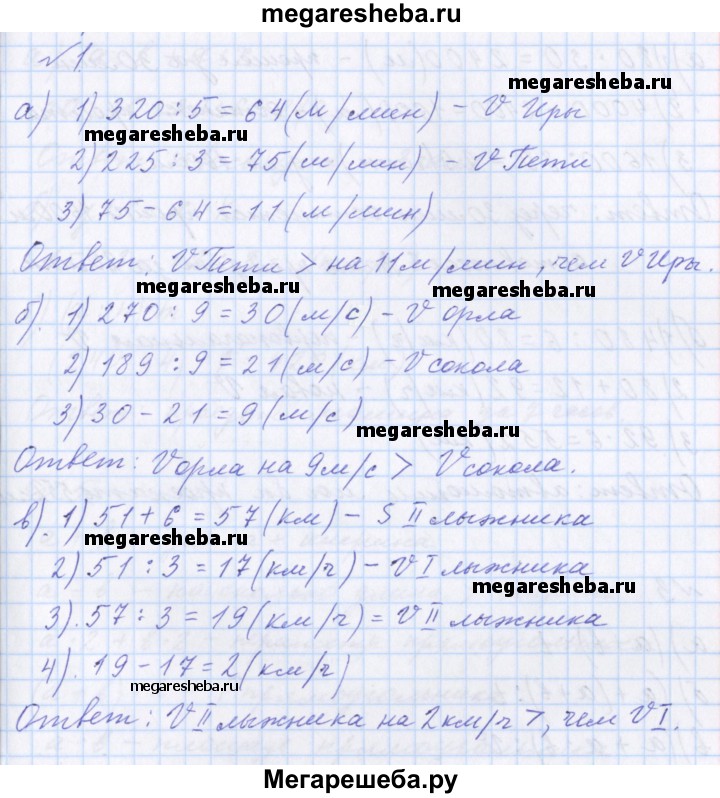 megaresheba.ru
№1.
а) 1) 320 : 5 = 64 (м/мин) - V Иры
megaresheba.ru
megaresheba.ru
2) 225 : 3 = 75 (м/мин) - V Пети
3) 75 - 64 = 11 (м/мин)
Ответ: V Пети > на 11 м/мин, чем V Иры.
megaresheba.ru
megaresheba.ru
б). 1) 270 : 9 = 30 (м/с) - V орла
2) 189 : 9 = 21 (м/с) - V сокола
3) 30 - 21 = 9 (м/с)
megaresheba.ru
Ответ: V орла на 9 м/с > V сокола.
в). 1) 51 + 6 = 57 (км) - S II лыжника
megaresheba.ru
2) 51 : 3 = 17 (км/ч) - V I лыжника
megaresheba.ru
3). 57 : 3 = 19 (км/ч) = V II лыжника
4). 19 - 17 = 2 (км/ч)
megaresheba.ru
Ответ: V II лыжника на 2 км/ч >, чем V I.
Мегарешеба.ру